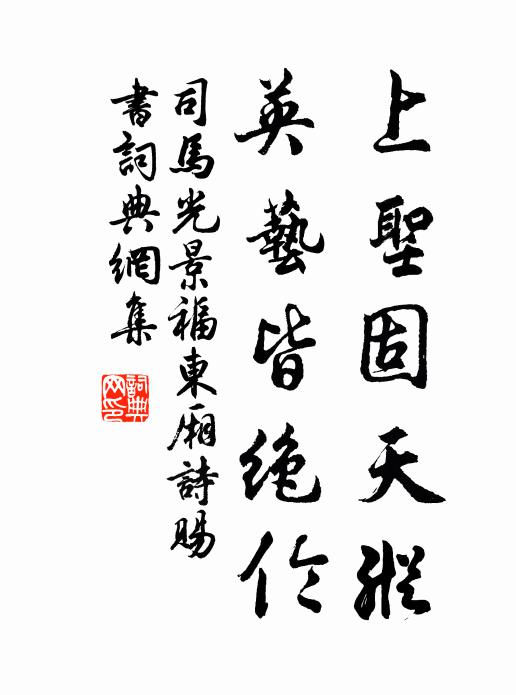 上聖固天縱
英藝皆絶倫
司馬光景福東廂詩賜
書詞典網集
詞典網印